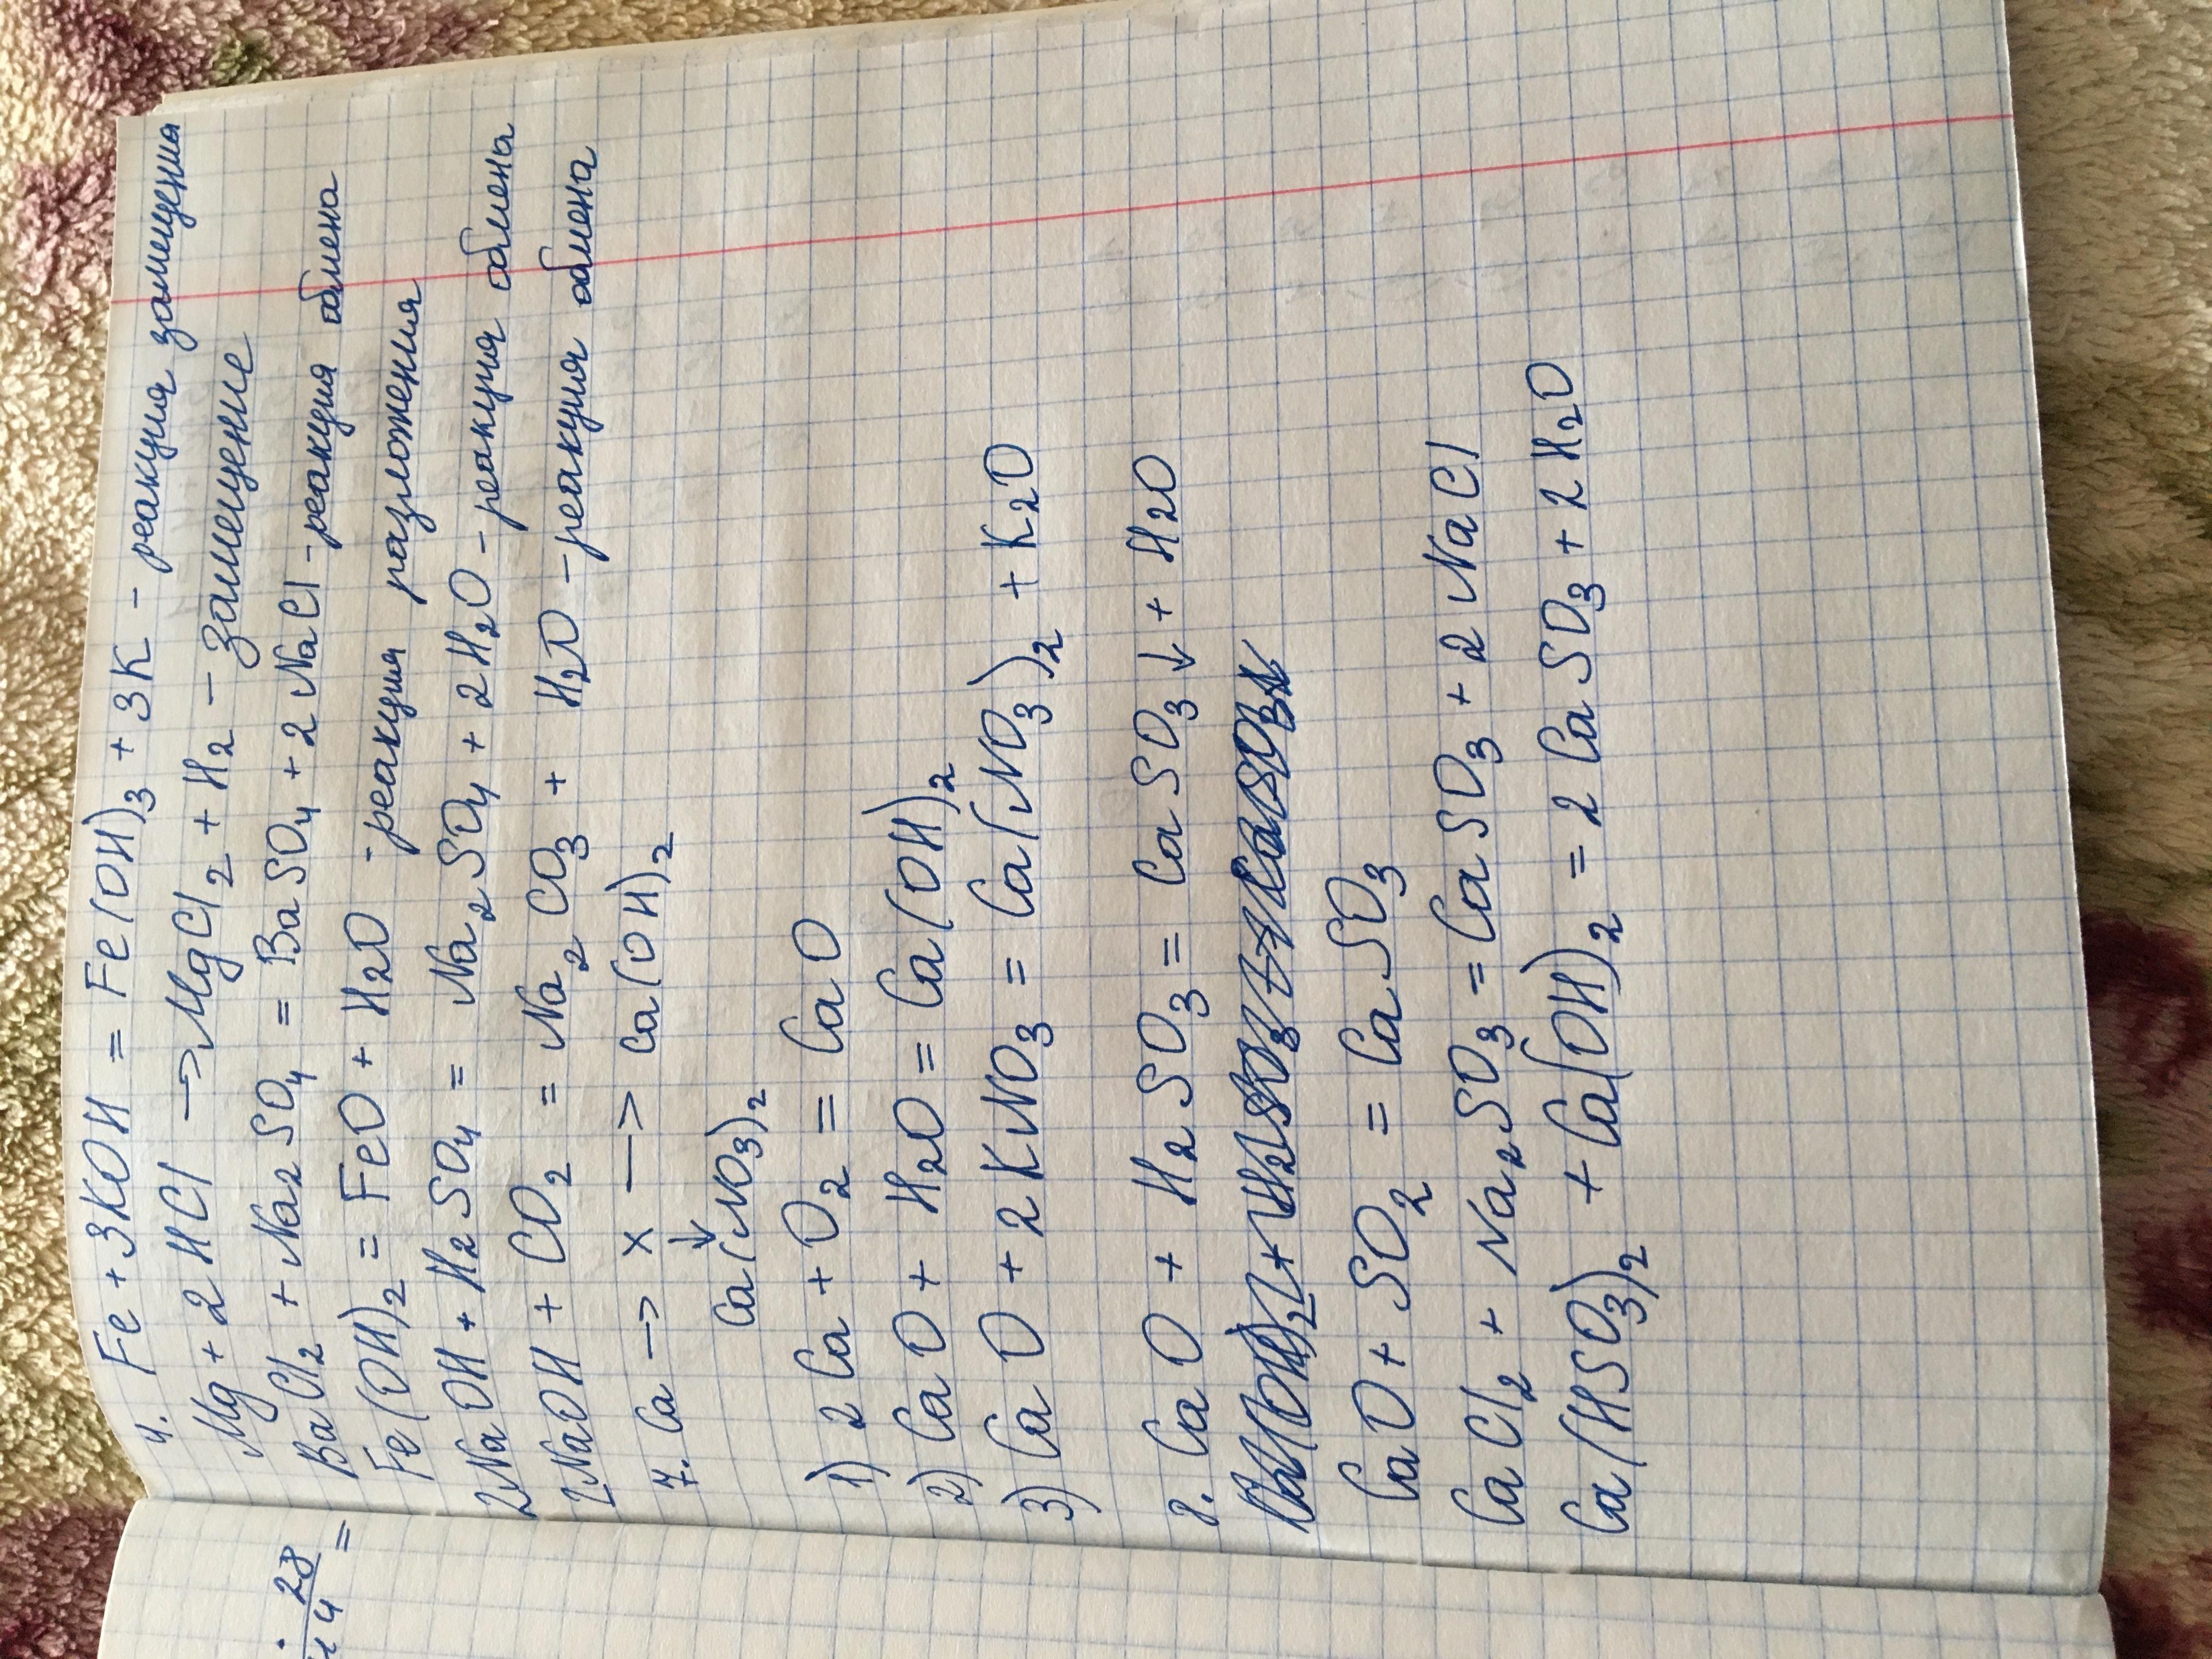 4. Fe + 3KOH = Fe(OH)₃ + 3K - реакция замещения
Mg + 2HCl → MgCl₂ + H₂ - замещение
BaCl₂ + Na₂SO₄ = BaSO₄ + 2NaCl - реакция обмена
Fe(OH)₂ = FeO + H₂O - реакция разложения
2NaOH + H₂SO₄ = Na₂SO₄ + 2H₂O - реакция обмена
2NaOH + CO₂ = Na₂CO₃ + H₂O - реакция обмена
7. Ca → x → Ca(OH)₂
↓
Ca(NO₃)₂
1) 2Ca + O₂ = CaO
2) CaO + H₂O = Ca(OH)₂
3) CaO + 2KNO₃ = Ca(NO₃)₂ + K₂O
8. CaO + H₂SO₃ = CaSO₃↓ + H₂O
CaO + SO₂ = CaSO₃
CaCl₂ + Na₂SO₃ = CaSO₃ + 2NaCl
Ca(HSO₃)₂ + Ca(OH)₂ = 2CaSO₃ + 2H₂O
28
=